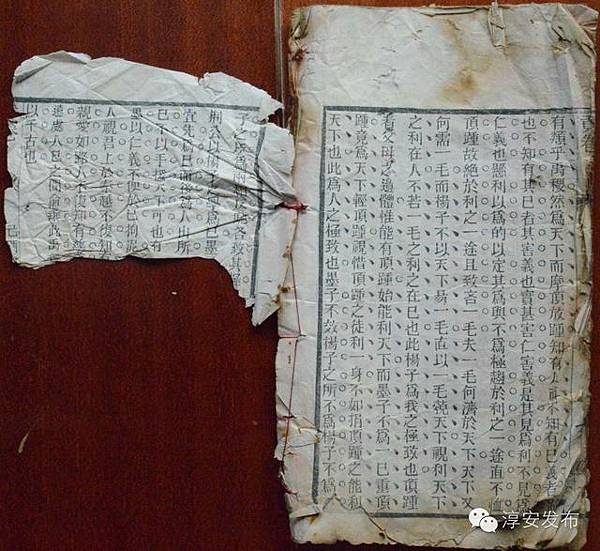 有類乎禹稷然爲天下而摩頂放踵知有人而不知有巳義者
也不知有其巳者其害義也實甚害仁害義是其見爲利不見爲
仁義也懸利以爲的以定其爲與不爲極趨於利之一途直不
頂踵故絕於利之一途且致吝一毛夫一毛何濟於天下天下又
何需一毛而楊子不以天下易一毛直以一毛強天下視利天下
之利在人不若一毛之利之在巳也此楊子爲我之極致也頂踵
者父母之遺體惟能有頂踵始能利天下而墨子不爲一巳重頂
踵竟爲天下輕頂踵視惜頂踵之徒利一身不如捐頂踵之能利
天下也此爲人之極致也墨子不效楊子之所不爲楊子不爲
子之所爲兩各致其
荆公以楊子爲巳墨
宜先爲巳而後爲人由所
巳不以手援天下可也有
墨以仁義不便於巳拘泥
人視君上於秦越不復知有
親愛如路人不復知有
遠處人巳之間
以千古也
淳安发布